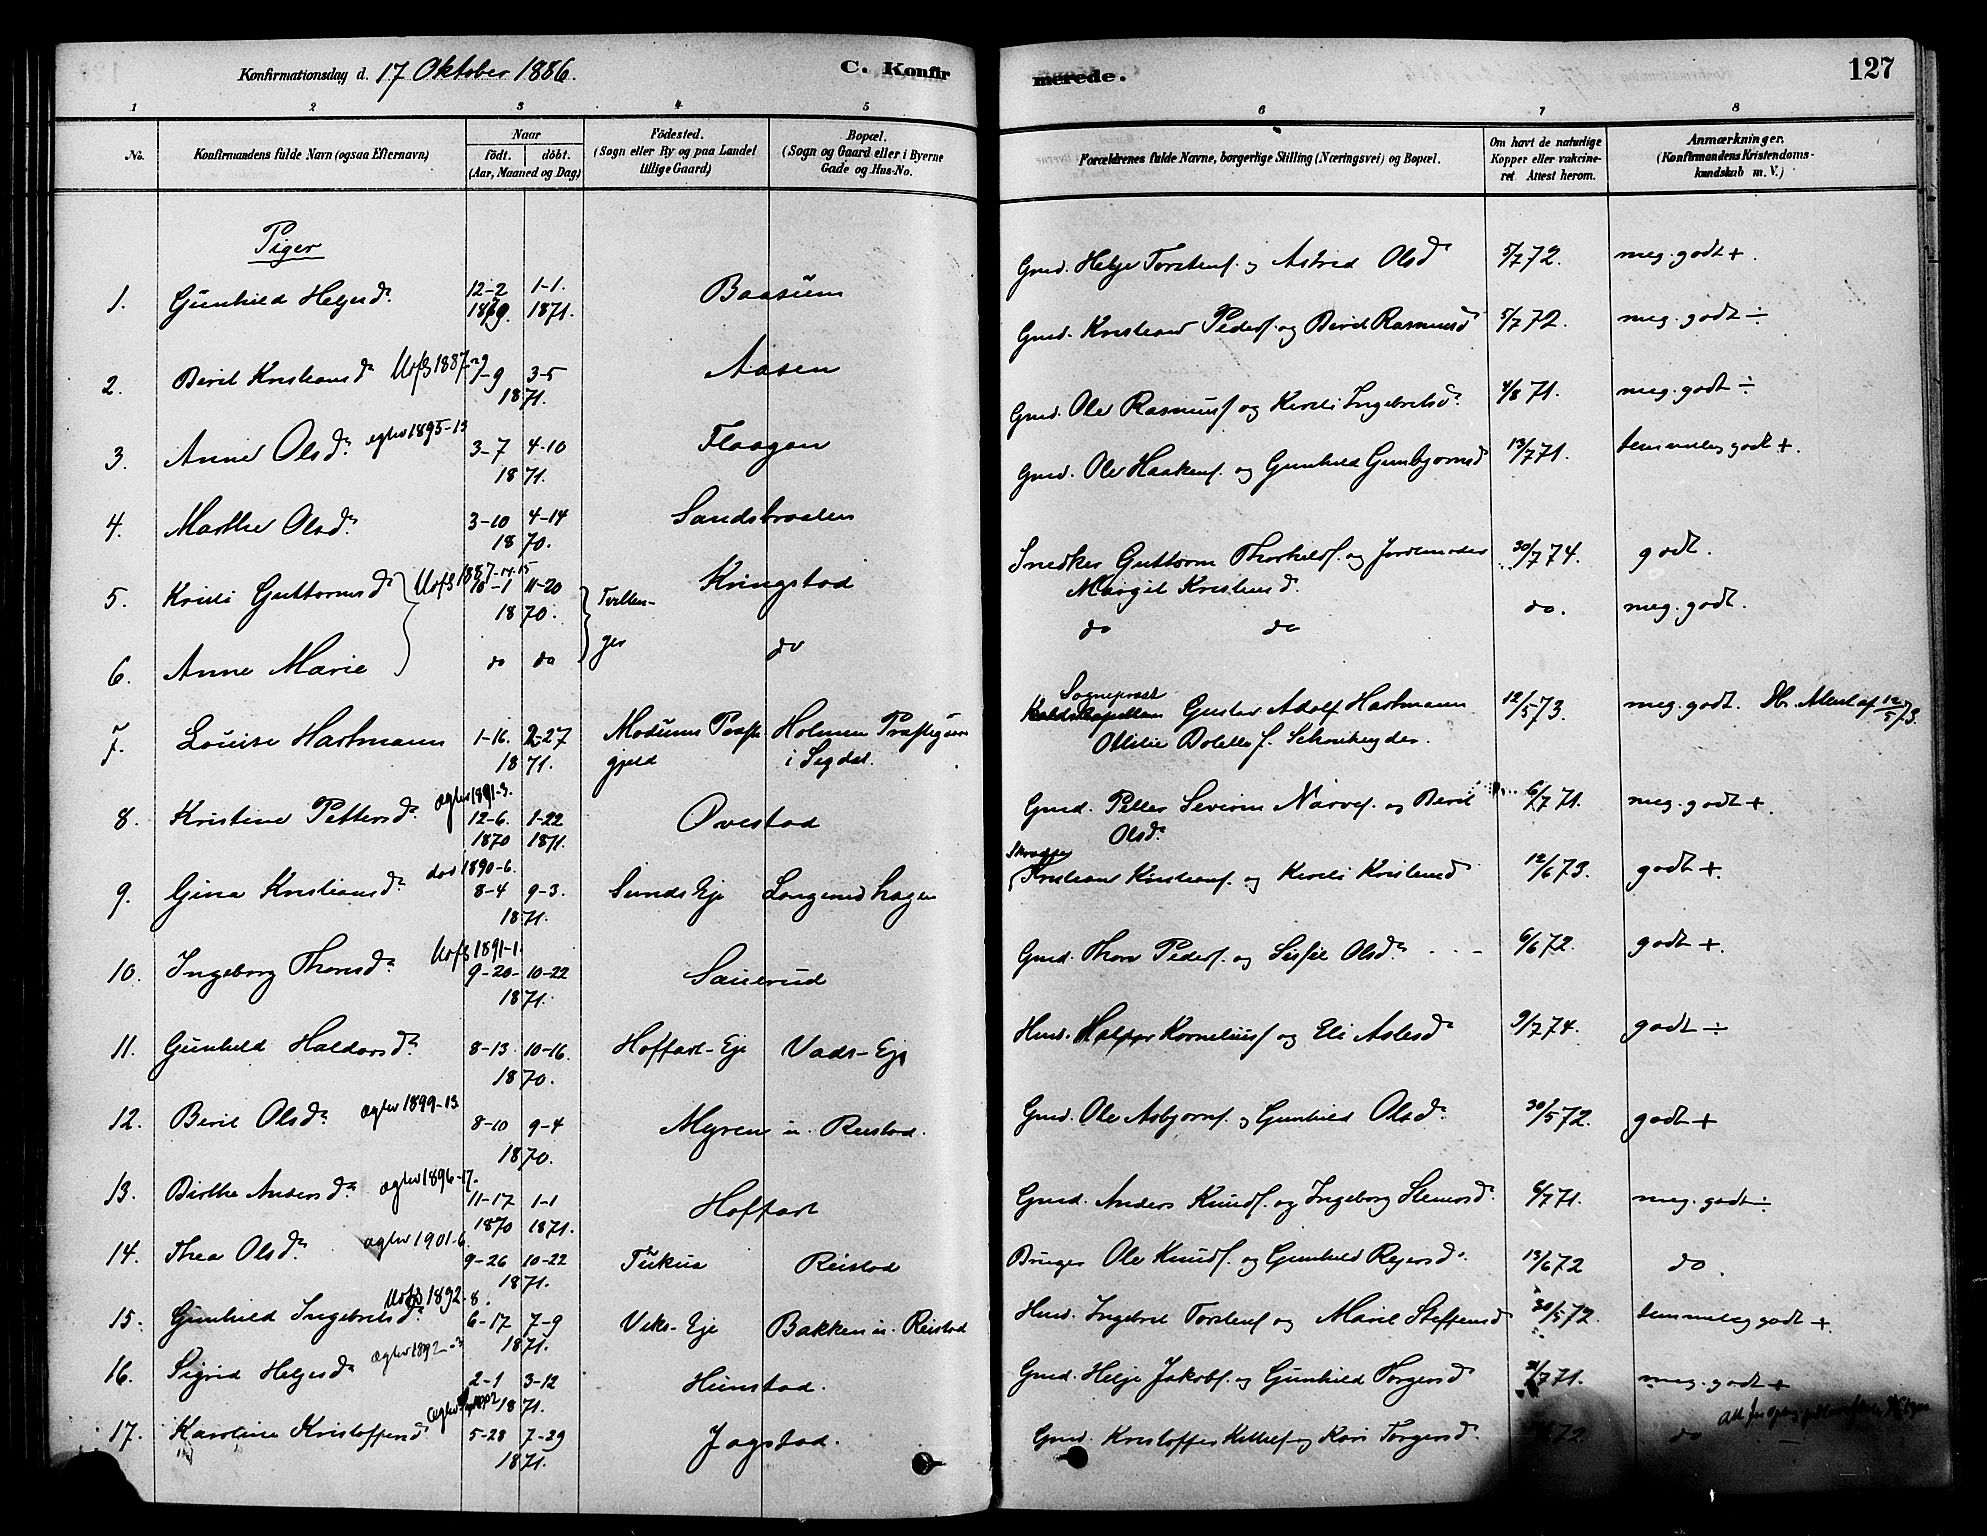 Konfirmationsdag d. 17 Oktober 1886.
C. Konfir
merede.
127
1 2 3 4 5 6 7 8
No.
Konfirmandens fulde Navn (ogsaa Efternavn)
Naar
født. døbt.
(Aar, Maaned og Dag)
Födested.
(Sogn eller By og paa Landet
tillige Gaard)
Bopæl.
(Sogn og Gaard eller i Byerne
Gade og Hus-No.
Forældrenes fulde Navne, borgerlige Stilling (Næringsvei) og Bopæl.
Om havt de naturlige
Kopper eller vakcine-
ret Attest herom.
Anmærkninger.
(Konfirmandens Kristendoms-
kundskab m. V.)
Piger
1. Gunhild Helgesd. 12-2 1-1. Baasum Gmd. Helge Torstens. og Astrid Olsd. 5/7 72. meg. godt +.
1870. 1871.
2. Beril Kristiansd. Uofs 1887-29 7-9 3-5 Aasen Gmd. Kristian Peders. og Beril Rasmusd. 5/7 72. meg. godt ÷
1871.
3. Anne Olsd. egtev 1895-13 3-7 4-10 Flaagan Gmd. Ole Rasmuss. og Kirsti Ingebretsd. 4/8 71. meg. godt ÷
1871.
4. Marthe Olsd. 3-10 4-14 Sandsbraaten Gmd. Ole Haakens. og Gunhild Gunbjørnsd. 13/7 71. temmelig godt +.
1870.
5. Kristi Guttormsd. Uofs 1887-14.15 10-1 11-20 Tvillin- Kringstad Snedker Guttorm Thorkilds. og Jordemoder 30/7 74. godt.
1870. Margit Kristensd.
6. Anne Marie do do ger do do do do. meg. godt.
7. Louise Hartmann 1-16. 2-27 Modums Præste- Holmen Præstegaard Sogneprest
1871. gjeld i Sigdal. Gustav Adolf Hartmann 12/5 73. meg. godt. Hr. Attest af 12/5 73.
Ottilie Dolette f. Schouheyder.
8. Kristine Pettersd. Ægtev 1891-3. 12-6. 1-22 Ovestad Gmd. Petter Severin Narves. og Beril 6/7 71. meg. godt +.
1870 1871. Olsd.
9. Gina Kristiansd. død 1890-6. 8-4 9-3. Sunds Eje Langerudhagen Skrædder
1871. Kristian Kristians. og Kirsti Kristensd 12/6 73. godt +.
10. Ingeborg Thorsd. Uofs 1891-1. 9-20- 10-22 Sauerud Gmd. Thor Peders. og Sissil Olsd. 6/6 72. godt +.
1871.
11. Gunhild Haldorsd. 8-13. 10-16. Hoffart-Eje Vads-Eje Husd. Haldor Kornelius. og Eli Aslesd. 9/7 74. godt ÷
1870.
12. Beril Olsd. Ægtev 1899-13. 8-10 9-4 Myren u. Reistad. Gmd. Ole Asbjørns. og Gunhild Olsd. 30/5 72. godt +
1870.
13. Birthe Andersd. Ægtev 1896-17. 11-17 1-1 Hoffart Gmd. Anders Knuds. og Ingeborg Stenersd. 6/7 71. meg. godt ÷
1870 1871.
14. Thea Olsd. Ægtev 1901-6. 9-26 10-22 Fukua Reistad Bruger Ole Knuds. og Gunhild Rejersd. 13/6 72 do.
1871.
15. Gunhild Ingebretsd. Uofs 1892-8. 6-17 7-9 Veks-Eje Bakken u. Reistad Husd. Ingebret Torstens. og Marit Steffensd 30/5 72. temmelig godt +.
1871.
16. Sigrid Helgesd. Ægtev 1892-3 2-1 3-12 Hunstad. Gmd. Helge Jakobs. og Gunhild Torgersd. 21/7 71. meg. godt +
1871.
17. Karoline Kristoffersd. 5-28 7-29 Jogstad. Gmd. Kristoffer Kittels. og Kari Torgersd. 72. do
1871.